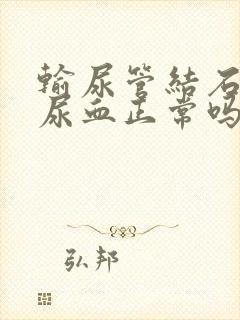 输尿管结石
尿血正常吗
弘邦